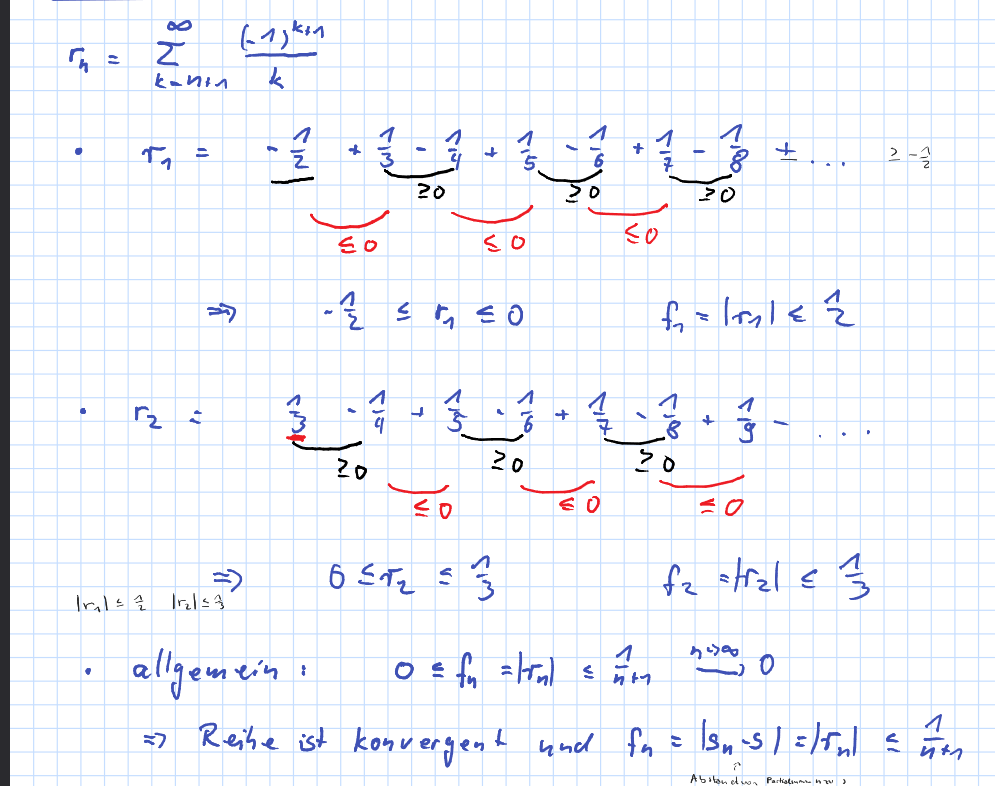 rₙ = ∑_{k=n+1}^{∞} (-1)^{k+1} / k
• r₁ = - 1/2 + 1/3 - 1/4 + 1/5 - 1/6 + 1/7 - 1/8 ± ... ≥ -1/2
≥0 ≥0 ≥0
≤0 ≤0 ≤0
⇒ -1/2 ≤ r₁ ≤ 0 f₁ = |r₁| ≤ 1/2
• r₂ = 1/3 - 1/4 + 1/5 - 1/6 + 1/7 - 1/8 + 1/9 - ....
≥0 ≥0 ≥0
≤0 ≤0 ≤0
⇒ 0 ≤ r₂ ≤ 1/3 f₂ = |r₂| ≤ 1/3
|r₁| ≤ 1/2 |r₂| ≤ 1/3
• allgemein: 0 ≤ fₙ = |rₙ| ≤ 1/(n+1) —n→∞→ 0
⇒ Reihe ist konvergent und fₙ = |sₙ - s| = |rₙ| ≤ 1/(n+1)
↑
Abstand von